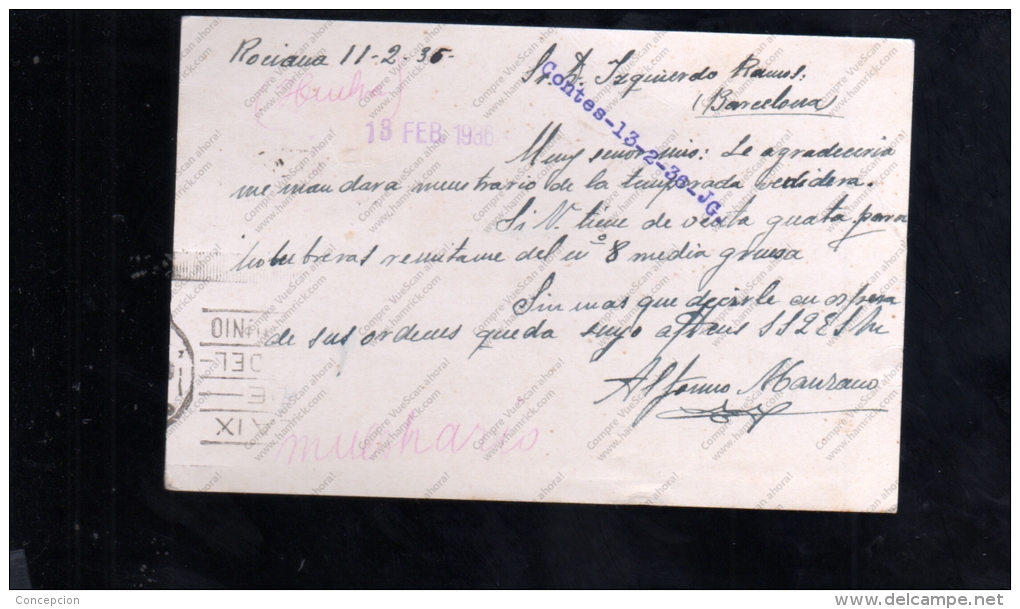 Rociana 11-2-36-
Sr. D. Izquierdo Ramos:
(Huelva)
Barcelona
13 FEB. 1936
Contes-13-2-36-JG.
Muy señor mio: Le agradeceria
me mandara muestrario de la temporada venidera.
Si V. tiene de venta guata para
hombreras remitame del nº 8 media gruesa
Sin mas que decirle en espera
de sus ordenes queda suyo
Alfonso Manzano
muestrario
UNIO
DEL-
E
AIX
Compre VueScan ahora!
www.hamrick.com
Concepcion
www.delcampe.net